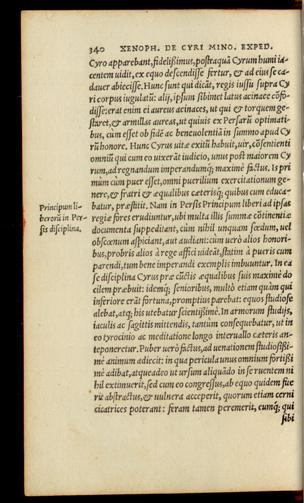 340 XENOPH. DE CYRI MINO. EXPED.
Cyro apparebant, fidelißimus, postea quā Cyrum humi ia-
centem uidit, ex equo descendisse fertur, & ad eius se ca-
dauer abiecisse. Hunc sunt qui dicāt, regis iussu supra Cy
ri corpus iugulatū: alij, ipsum sibimet latus acinace cōfo-
disse: erat enim ei aureus acinaces, ut qui & torquem ge-
staret, & armillas aureas, ut quiuis ex Persarū optimati-
bus, cùm esset ob fidē ac beneuolentiā in summo apud Cy
rū honore. Hunc Cyrus uitæ exitū habuit, uir, cōsentienti
omniū qui cum eo uixerāt iudicio, unus post maiorem Cy
rum, ad regnandum imperandumq́; maximè factus. Is pri
mùm cum puer esset, omni puerilium exercitationum ge-
nere, & fratri & æqualibus cæterisq́; quibus cum educa-
batur, præstitit. Nam in Persis Principum liberi ad ipsas
regiæ fores erudiuntur, ubi multa illis summæ cōtinentiæ
documenta suppeditant, cùm nihil unquam fœdum, uel
obscœnum aspiciant, aut audiant: cùm uerò alios honori-
bus, probris alios à rege affici uideāt, statim à pueris cum
parendi, tum bene imperandi exemplis imbuuntur. In ea
se disciplina Cyrus præ cūctis æqualibus suis maximè do
cilem præbuit: idemq́; senioribus, multò etiam quàm qui
inferiore erāt fortuna, promptius parebat: equos studiosè
alebat, atq; his utebatur scientißimè. In armorum studijs,
iaculis ac sagittis mittendis, tantùm consequebatur, ut in
eo tyrocinio ac meditatione longo interuallo cæteris an-
teponeretur. Puber uerò factus, ad uenationem studiosißi-
mè animum adiecit: in qua pericula unus omnium fortißi
mè adibat, atque adeo ut ursum aliquādo in se ruentem ni
hil extimuerit, sed cum eo congressus, ab equo quidem fue
rit abstractus, & uulnera acceperit, quorum etiam cerni
cicatrices poterant: feram tamen peremerit, eumq́; qui
sibi
Principum li-
berorū in Per-
sis disciplina.